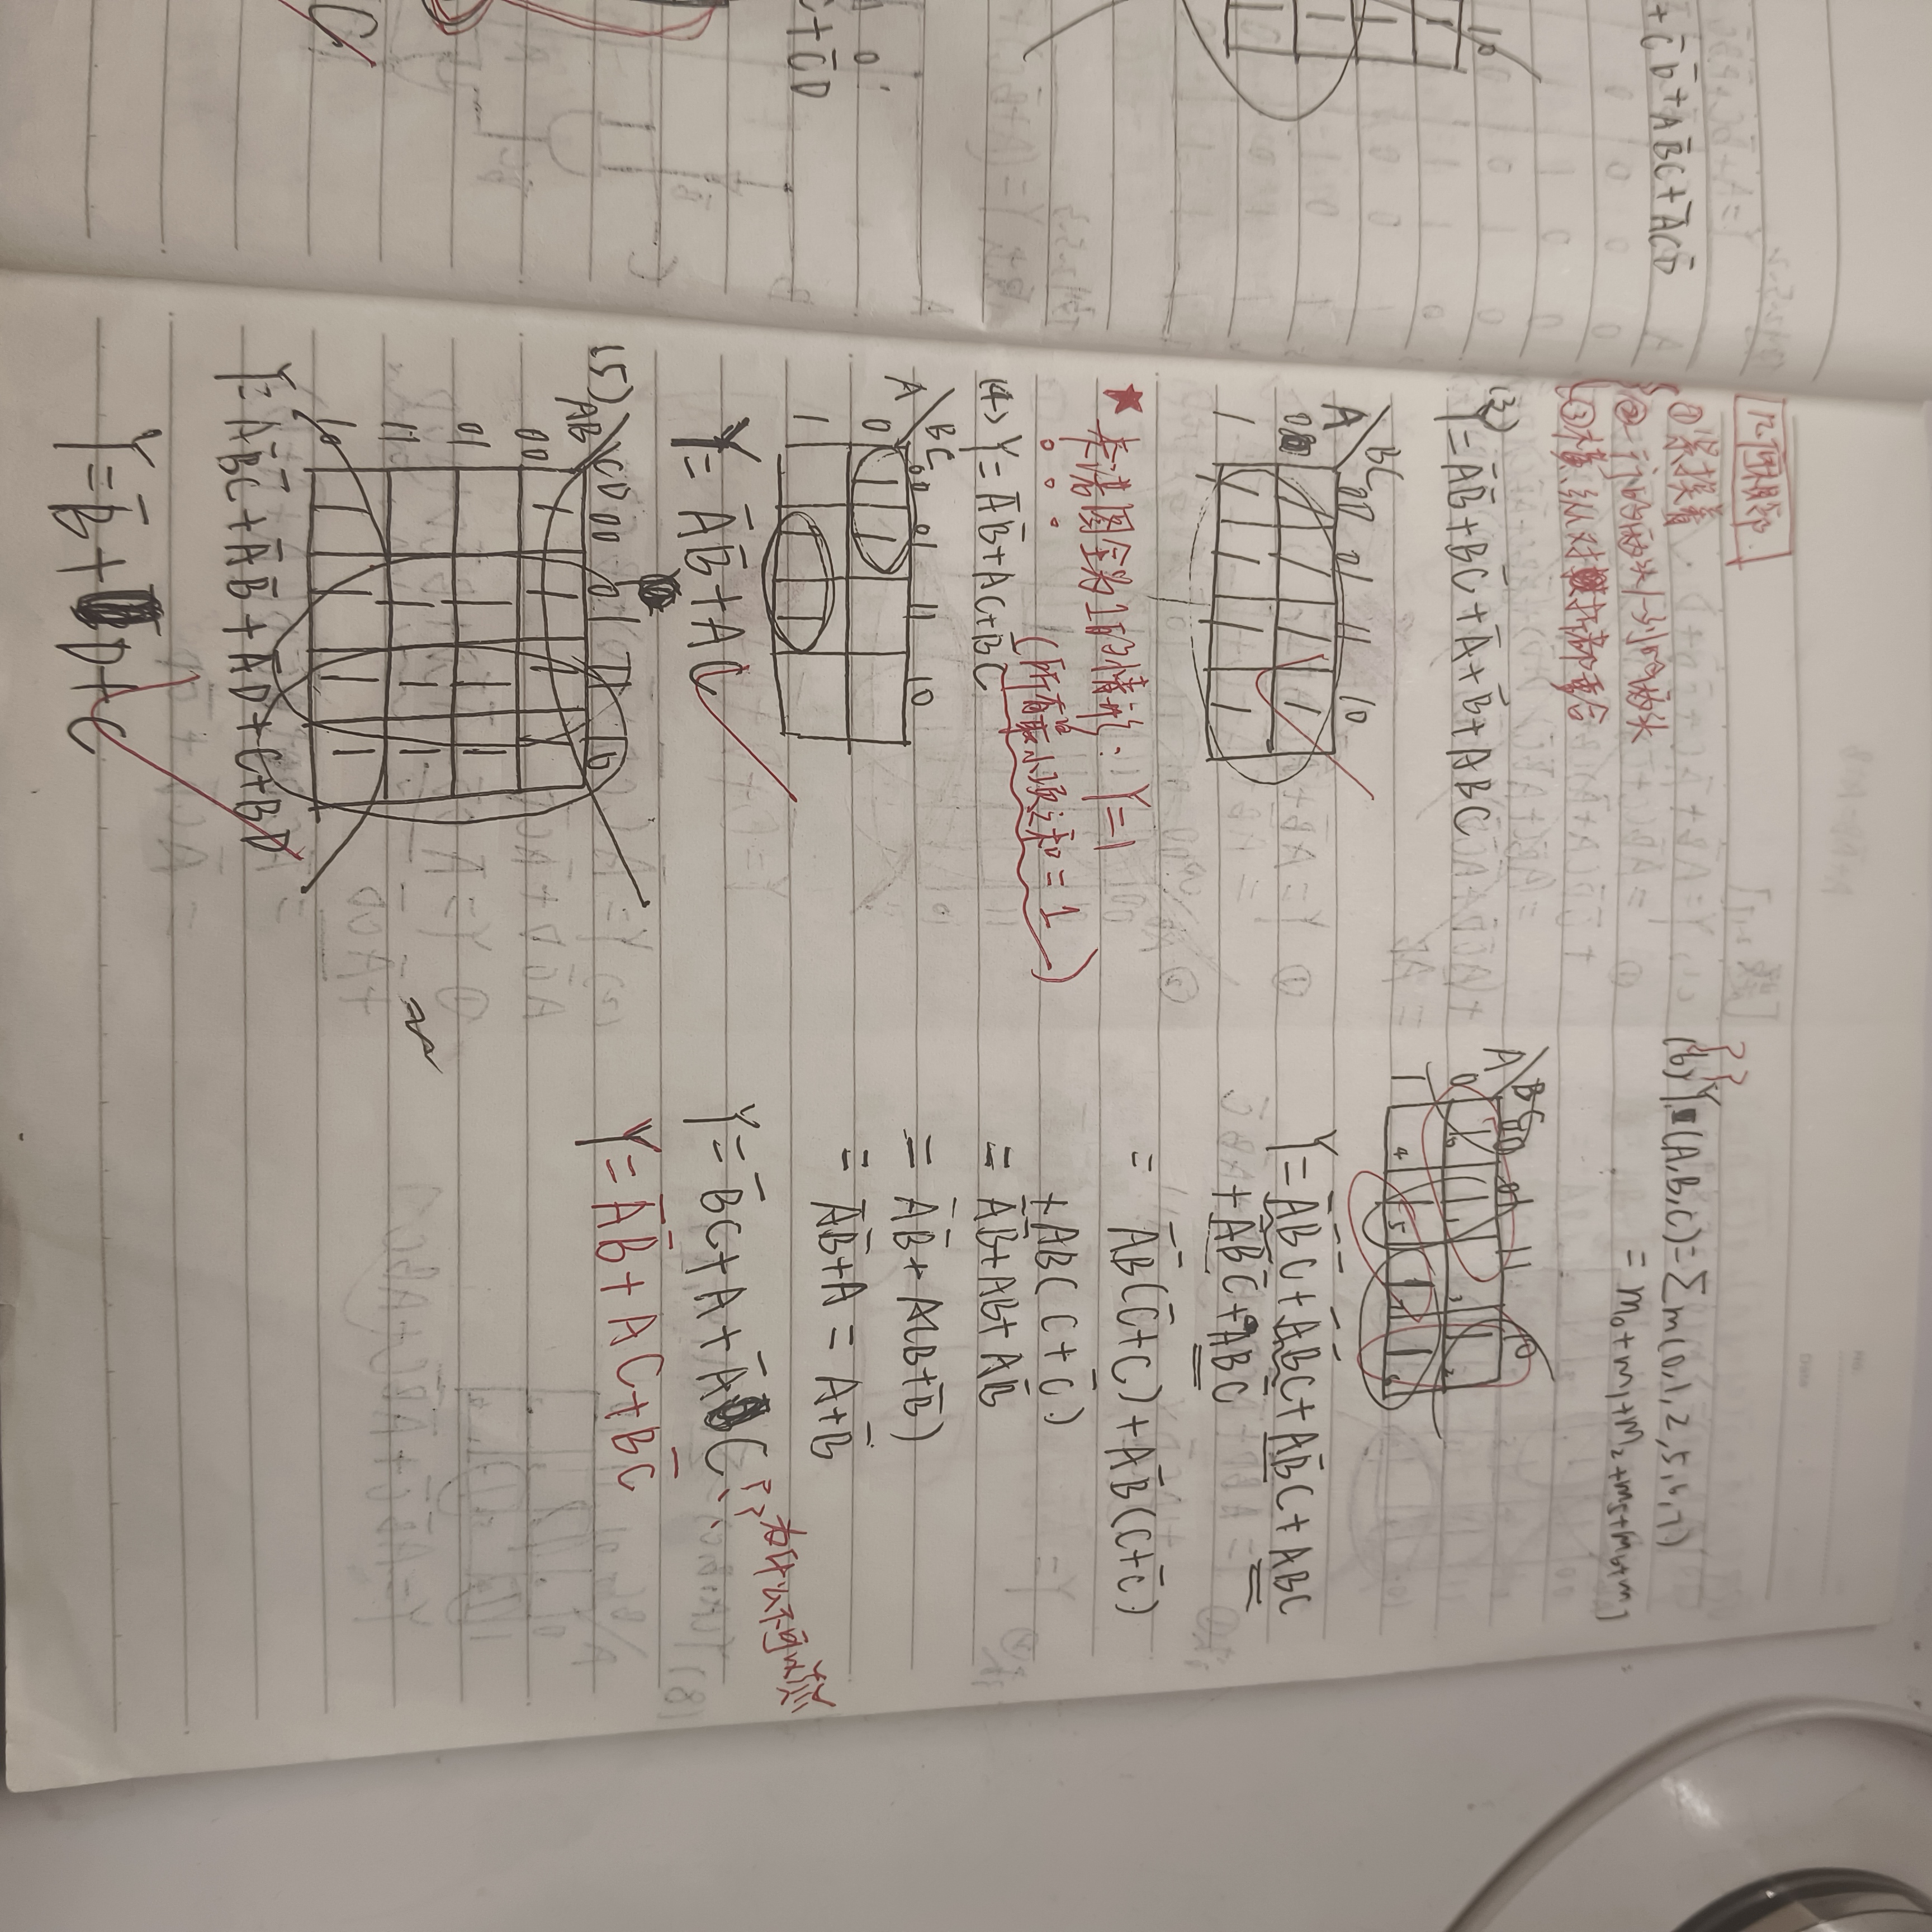 +C̄D̄+AB̄C+ĀCD̄
10
1
1
1
1
C+C̄D
C
几何相邻
①紧挨着
②一行的两头/一列的两头
③横、纵对折都重合
(3)
Y=ĀB̄+BC̄+Ā+B̄+ABC
BC
A 00 01 11 10
0 1 1 1 1
1 1 1 1 1
★卡诺图全为1的情形:Y=1
(所有最小项之和=1)
(4) Y=ĀB̄+AC+B̄C
BC
A 00 01 11 10
0 1 1
1 1 1
Y=ĀB̄+AC
(5)
AB CD 00 01 11 10
00 1 1 1 1
01 1 1 1
11 1 1 1
10 1 1 1 1
Y=AB̄C̄+ĀB̄+ĀD+C+BD
Y=B̄+D+C
??
(6) Y(A,B,C)=Σm(0,1,2,5,6,7)
=m₀+m₁+m₂+m₅+m₆+m₇
BC
A 00 01 11 10
0 1 0 1 1 3 1 2
1 4 1 5 1 7 1 6
Y=ĀB̄C̄+ĀB̄C+AB̄C+ABC
+ĀBC̄+ABC̄
=ĀB̄(C̄+C)+AB̄(C+C̄)
+AB(C+C̄)
=ĀB̄+AB+AB̄
=ĀB̄+A(B+B̄)
=ĀB̄+A=A+B̄
Y=B̄C+A+ĀC̄ ??为什么不可以
Y=ĀB̄+AC+BC̄